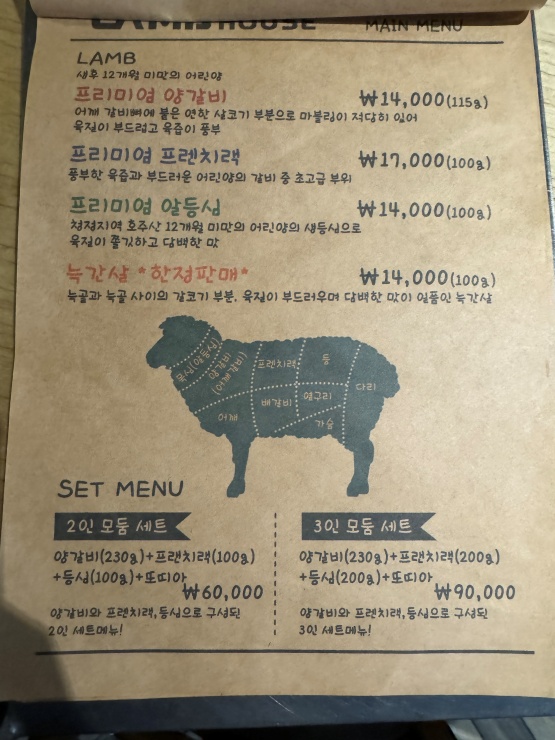 LAMB HOUSE MAIN MENU
LAMB
생후 12개월 미만의 어린양
프리미엄 양갈비 ₩14,000(115g)
어깨 갈비뼈에 붙은 연한 살코기 부분으로 마블링이 적당히 있어
육질이 부드럽고 육즙이 풍부
프리미엄 프렌치랙 ₩17,000(100g)
풍부한 육즙과 부드러운 어린양의 갈비 중 초고급 부위
프리미엄 알등심 ₩14,000(100g)
청정지역 호주산 12개월 미만의 어린양의 생등심으로
육질이 쫄깃하고 담백한 맛
늑간살 *한정판매* ₩14,000(100g)
늑골과 늑골 사이의 갈코기 부분. 육질이 부드러우며 담백한 맛이 일품인 늑간살
목심(알등심)
양갈비
(어깨갈비)
프랜치랙
등
다리
어깨
배갈비
옆구리
가슴
SET MENU
2인 모둠 세트
양갈비(230g)+프랜치랙(100g)
+등심(100g)+또띠아
₩60,000
양갈비와 프렌치랙,등심으로 구성된
2인 세트메뉴!
3인 모둠 세트
양갈비(230g)+프랜치랙(200g)
+등심(200g)+또띠아
₩90,000
양갈비와 프렌치랙,등심으로 구성된
3인 세트메뉴!